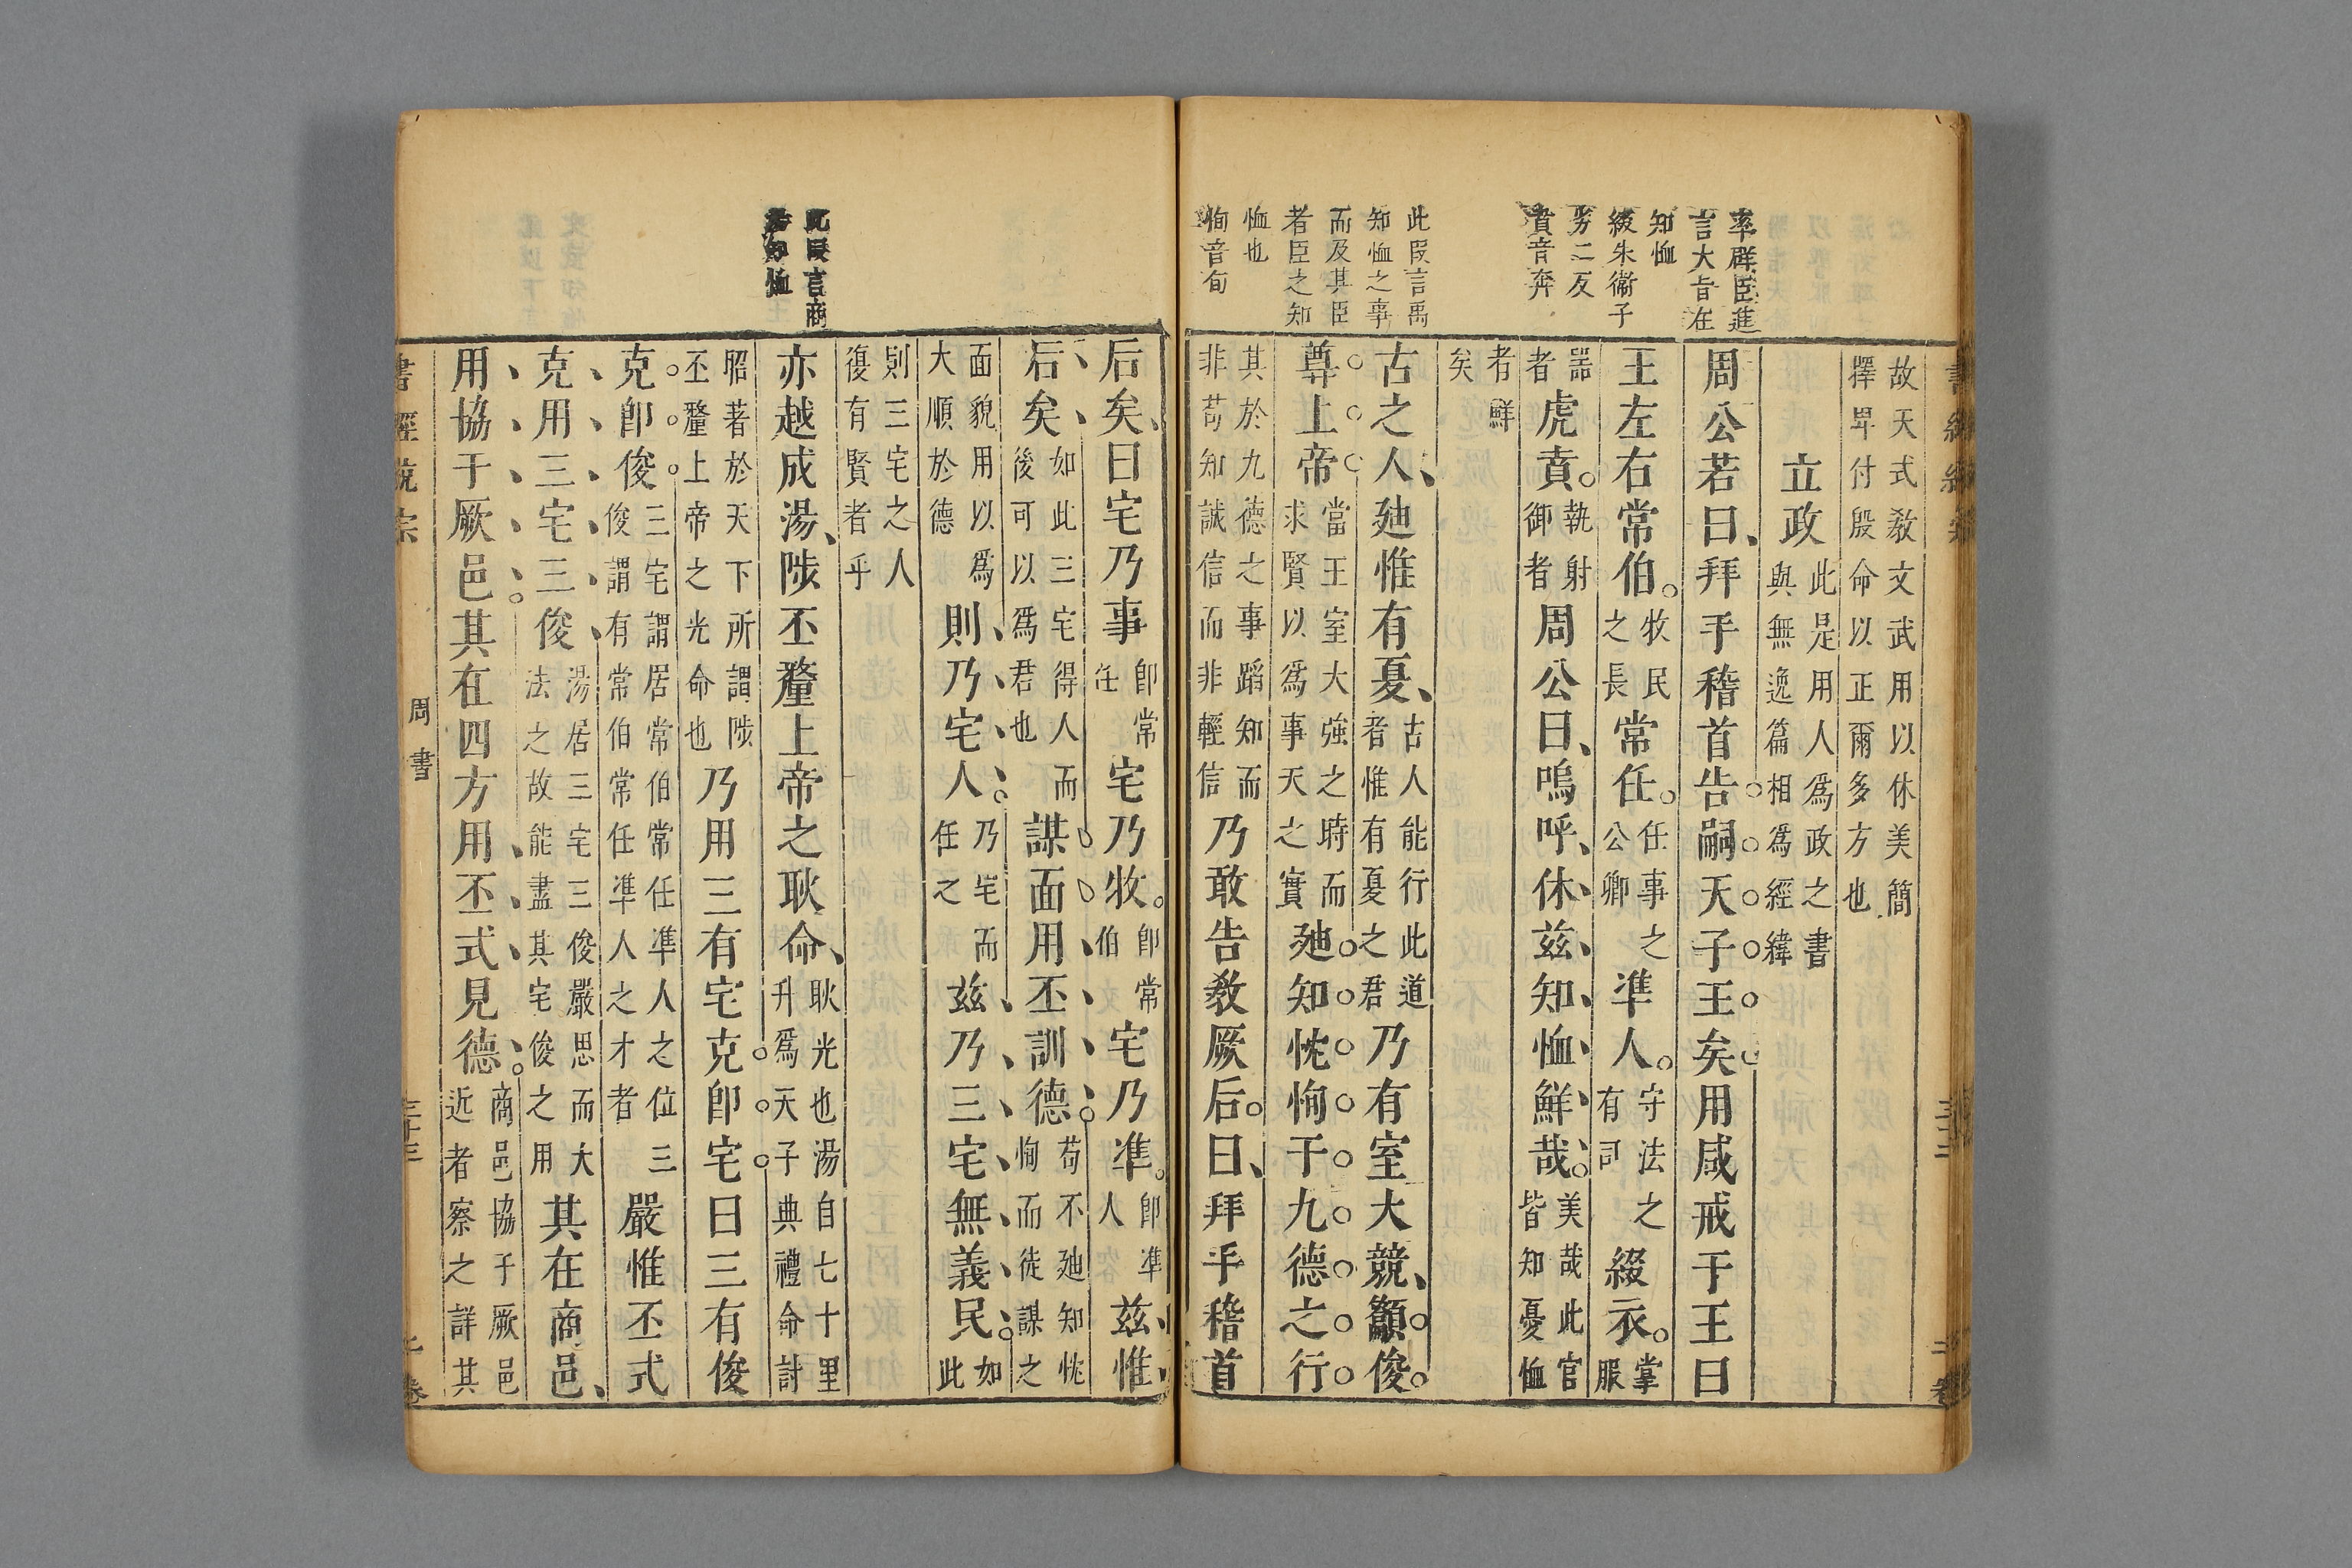 率群臣進
言大旨在
知恤
綴朱衞子
劣二反
賁音奔
此段言禹
知恤之事
而及其臣
者臣之知
恤也
恂音旬
故天式敎文武用以休美簡擇畀付殷命以正爾多方也
立政此是用人爲政之書與無逸篇相爲經緯
周公若曰、拜手稽首告嗣天子王矣用咸戒于王曰
王左右常伯。牧民之長常任。任事之公卿準人。守法之有司綴衣。掌服
器者虎賁。執射御者周公曰、嗚呼、休兹、知恤、鮮哉。美哉此官皆知憂恤
者鮮矣
古之人、廸惟有夏、古人能行此道者惟有夏之君乃有室大競、籲俊
尊上帝當王室大強之時而求賢以爲事天之實廸知忱恂于九德之行
其於九德之事蹈知而非苟知誠信而非輕信乃敢告敎厥后。曰、拜手稽首
此段言商
者知恤
后矣、曰宅乃事卽常任宅乃牧。卽常伯宅乃準。卽準人兹惟
后矣如此三宅得人而後可以爲君也謀面用丕訓德苟不廸知忱恂而徒謀之
面貌用以爲大順於德則乃宅人。乃宅而任之兹乃三宅無義民。如此
則三宅之人復有賢者乎
亦越成湯、陟丕釐上帝之耿命、耿光也湯自七十里升爲天子典禮命討
昭著於天下所謂陟丕釐上帝之光命也乃用三有宅克卽宅曰三有俊
克卽俊三宅謂居常伯常任準人之位三俊謂有常伯常任準人之才者嚴惟丕式
克用三宅三俊湯居三宅三俊嚴思而大法之故能盡其宅俊之用其在商邑、
用協于厥邑其在四方用丕式見德。商邑協于厥邑近者察之詳其
周書